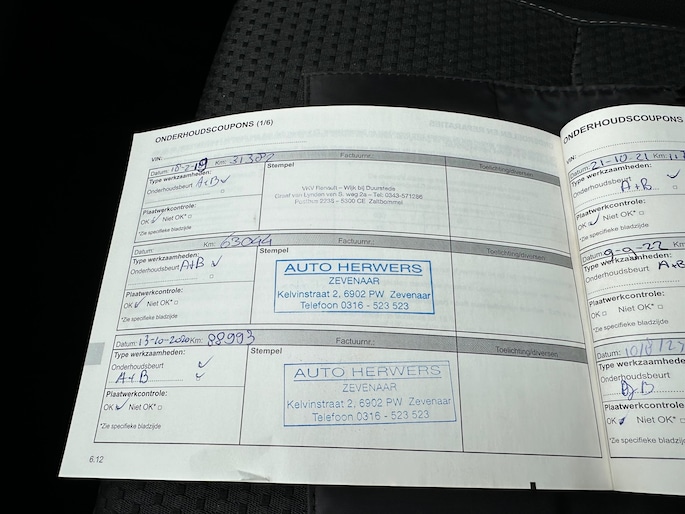 ONDERHOUDSCOUPONS (1/6)
VIN:
Datum: 18-2-19 Km: 31382 Factuurnr.: Toelichting/diversen
Type werkzaamheden: Stempel
Onderhoudsbeurt A+B ✓
VKV Renault – Wijk bij Duurstede
Plaatwerkcontrole:
OK ✓ Niet OK* □
*Zie specifieke bladzijde
Datum: Km: 63044 Factuurnr.: Toelichting/diversen
Type werkzaamheden: Stempel
Onderhoudsbeurt A+B ✓
AUTO HERWERS
ZEVENAAR
Kelvinstraat 2, 6902 PW Zevenaar
Telefoon 0316 - 523 523
Plaatwerkcontrole:
OK ✓ Niet OK* □
*Zie specifieke bladzijde
Datum: 13-10-2020 Km: 88993 Factuurnr.: Toelichting/diversen
Type werkzaamheden: Stempel
Onderhoudsbeurt ✓
A+B ✓
AUTO HERWERS
ZEVENAAR
Kelvinstraat 2, 6902 PW Zevenaar
Telefoon 0316 - 523 523
Plaatwerkcontrole:
OK ✓ Niet OK* □
*Zie specifieke bladzijde
6.12
ONDERHOUDSCOUPONS
VIN:
Datum: 21-10-21 Km:
Type werkzaamheden:
Onderhoudsbeurt ✓
A+B
Plaatwerkcontrole:
OK ✓ Niet OK* □
*Zie specifieke bladzijde
Datum: 9-9-22 Km:
Type werkzaamheden:
Onderhoudsbeurt A+B
Plaatwerkcontrole:
OK □ Niet OK* □
*Zie specifieke bladzijde
Datum:
Type werkzaamheden:
Onderhoudsbeurt
Plaatwerkcontrole
OK Niet OK* □
*Zie specifieke bladzijde